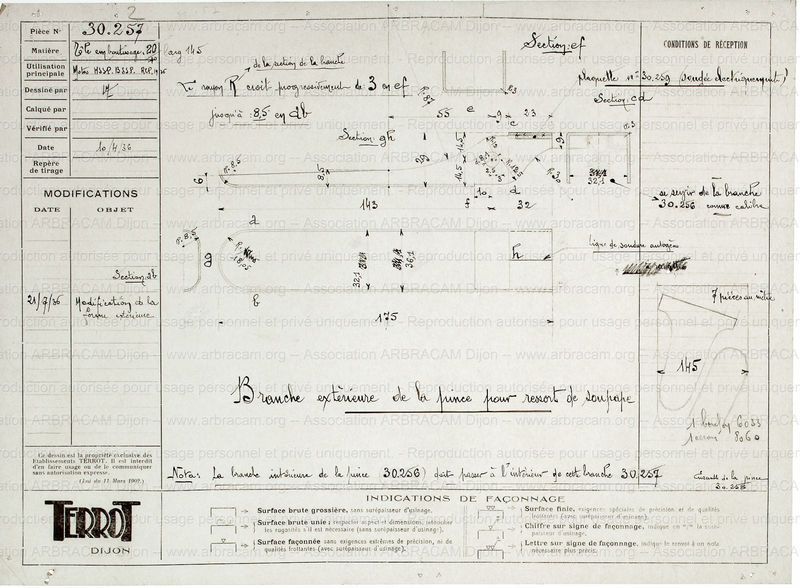 2
Pièce N° 30.257
Matière Tôle emboutissage 20/10 larg 145
Utilisation principale Motos HSSP. BSSP. RCP. 1936
Dessiné par
Calqué par
Vérifié par
Date 10/4/36
Repère de tirage
MODIFICATIONS
DATE OBJET
21/7/36 Modification de la
forme extérieure
de la section de la branche
Le rayon R croit progressivement de 3 en ef
jusqu'à 8,5 en ab
Section ef
plaquette n° 30.259 soudée électriquement
Section cd
Section gh
Section ab
CONDITIONS DE RÉCEPTION
se servir de la branche
30.256 comme calibre
ligne de soudure autogène
55 9 23
143
32
10
32,1
r.8,5
8,5
6
a
b
c
d
e
f
g
h
32,1
36,1
175
7 pièces au mètre
145
1 boulon 6033
1 écrou 8060
Branche extérieure de la pince pour ressort de soupape
Nota: La branche intérieure de la pince 30.256) doit passer à l'intérieur de cette branche 30.257
Ensemble de la pince
30.258
Ce dessin est la propriété exclusive des
Etablissements TERROT. Il est interdit
d'en faire usage ou de le communiquer
sans autorisation expresse.
(Loi du 11 Mars 1902.)
TERROT
DIJON
INDICATIONS DE FAÇONNAGE
Surface brute grossière, sans surépaisseur d'usinage.
Surface brute unie; respecter aspect et dimensions; retoucher
les rugosités s'il est nécessaire (sans surépaisseur d'usinage).
Surface façonnée sans exigences extrêmes de précision, ni de
qualités frottantes (avec surépaisseur d'usinage).
Surface finie, exigences spéciales de précision et de qualités
frottantes (avec surépaisseur d'usinage).
Chiffre sur signe de façonnage, indique en m/m la surépaisseur
d'usinage.
Lettre sur signe de façonnage, indique le renvoi à un nota
nécessaire plus précis.
www.arbracam.org – Association ARBRACAM Dijon – Reproduction autorisée pour usage personnel et privé uniquement.